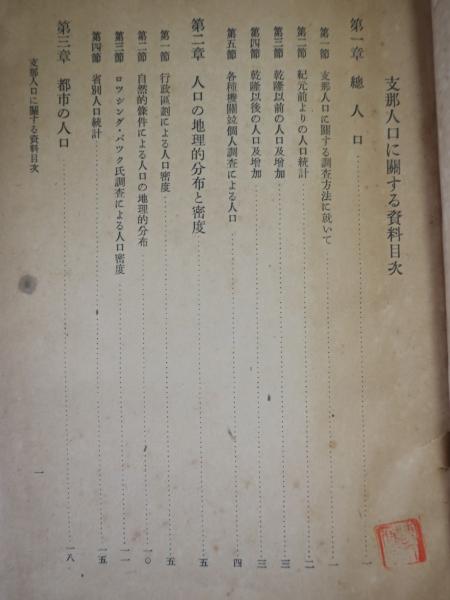 支那人口に關する資料目次
第一章 總人口……一
第一節 支那人口に關する調査方法に就いて……一
第二節 紀元前よりの人口統計……二
第三節 乾隆以前の人口及增加……三
第四節 乾隆以後の人口及增加……三
第五節 各種機關竝個人調査による人口……四
第二章 人口の地理的分布と密度……五
第一節 行政區劃による人口密度……五
第二節 自然的條件による人口の地理的分布……一〇
第三節 ロツシング・バツク氏調査による人口密度……一一
第四節 省別人口統計……一五
第三章 都市の人口……一八
支那人口に關する資料目次
一